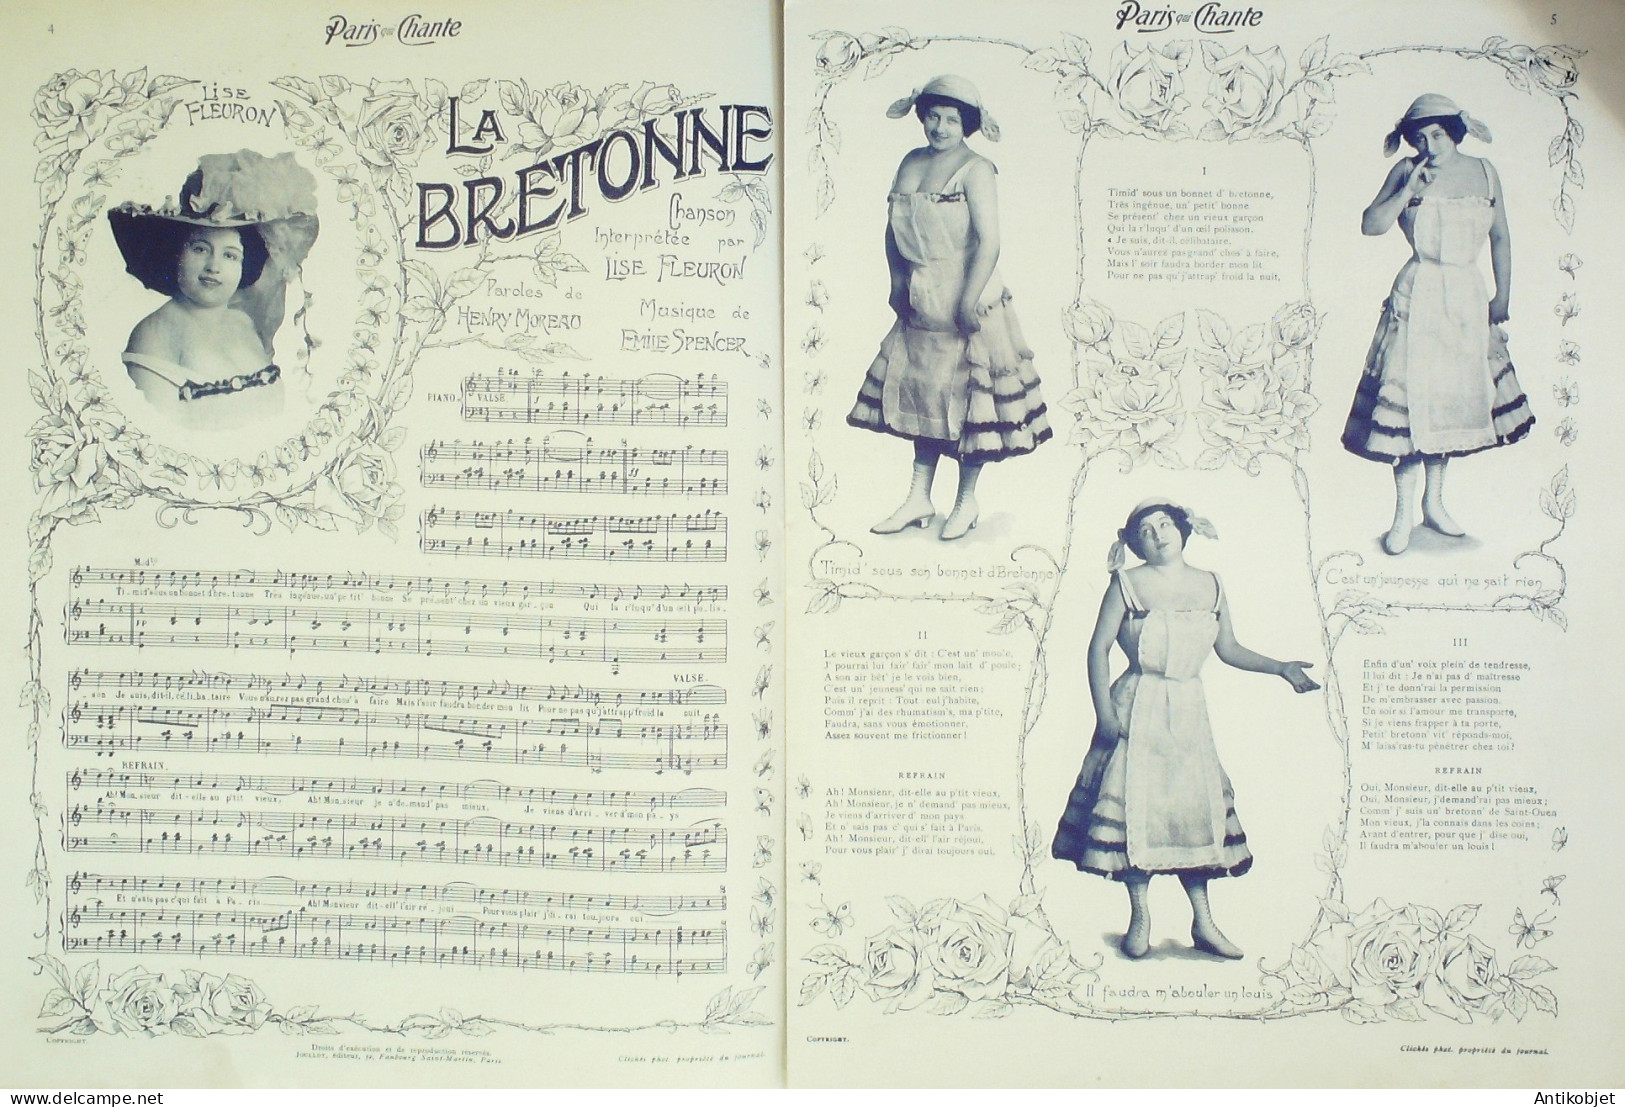 4
Paris qui Chante
LISE
FLEURON
LA
BRETONNE
Chanson
Interprétée par
LISE FLEURON
Paroles de
HENRY MOREAU
Musique de
EMILE SPENCER
PIANO.
VALSE.
Modto
Ti_mid' sous un bonnet d'bre_tonne Très ingénue, un' pe tit' bonne Se pré_sent' chez un vieux gar_çon Qui la r'luqu' d'un œil po_lis_
VALSE.
_son Je suis, dit-il, cé_li_ba_taire Vous n'aurez pas grand chos' à faire Mais l'soir faudra border mon lit Pour ne pas qu'j'attrapp' froid la nuit
REFRAIN.
Ah! Mon_sieur dit-elle au p'tit vieux, Ah! Mon_sieur je n'de_mand' pas mieux, Je viens d'arri_ver d'mon pa_ys
Et n'sais pas c'qui fait à Pa_ris Ah! Monsieur dit-ell' l'air ré_joui Pour vous plair' j'di_rai toujours oui
COPYRIGHT.
Droits d'exécution et de reproduction réservés.
JOULLOT, éditeur, 50, Faubourg Saint-Martin, Paris
Clichés phot. propriété du journal.
Paris qui Chante
5
I
Timid' sous un bonnet d' bretonne,
Très ingénue, un' petit' bonne
Se présent' chez un vieux garçon
Qui la r'luqu' d'un œil polisson.
« Je suis, dit-il, célibataire,
Vous n'aurez pas grand' chos' à faire,
Mais l' soir faudra border mon lit
Pour ne pas qu' j'attrap' froid la nuit,
Timid' sous son bonnet d'Bretonne
C'est un' jeunesse qui ne sait rien
II
Le vieux garçon s' dit : C'est un' moule,
J' pourrai lui fair' fair' mon lait d' poule ;
A son air bêt' je le vois bien,
C'est un' jeuness' qui ne sait rien ;
Puis il reprit : Tout seul j'habite,
Comm' j'ai des rhumatism's, ma p'tite,
Faudra, sans vous émotionner,
Assez souvent me frictionner !
REFRAIN
Ah ! Monsieur, dit-elle au p'tit vieux,
Ah ! Monsieur, je n' demand' pas mieux,
Je viens d'arriver d' mon pays
Et n' sais pas c' qui s' fait à Paris.
Ah ! Monsieur, dit-ell' l'air réjoui,
Pour vous plair' j' dirai toujours oui.
III
Enfin d'un' voix plein' de tendresse,
Il lui dit : Je n'ai pas d' maîtresse
Et j' te donn'rai la permission
De m'embrasser avec passion.
Un soir si l'amour me transporte,
Si je viens frapper à ta porte,
Petit' bretonn' vit' réponds-moi,
M' laiss'ras-tu pénétrer chez toi ?
REFRAIN
Oui, Monsieur, dit-elle au p'tit vieux,
Oui, Monsieur, j'demand'rai pas mieux ;
Comm' j' suis un' bretonn' de Saint-Ouen
Mon vieux, j'la connais dans les coins ;
Avant d'entrer, pour que j' dise oui,
Il faudra m'abouler un louis !
Il faudra m'abouler un louis
COPYRIGHT.
Clichés phot. propriété du journal.
Antikobjet